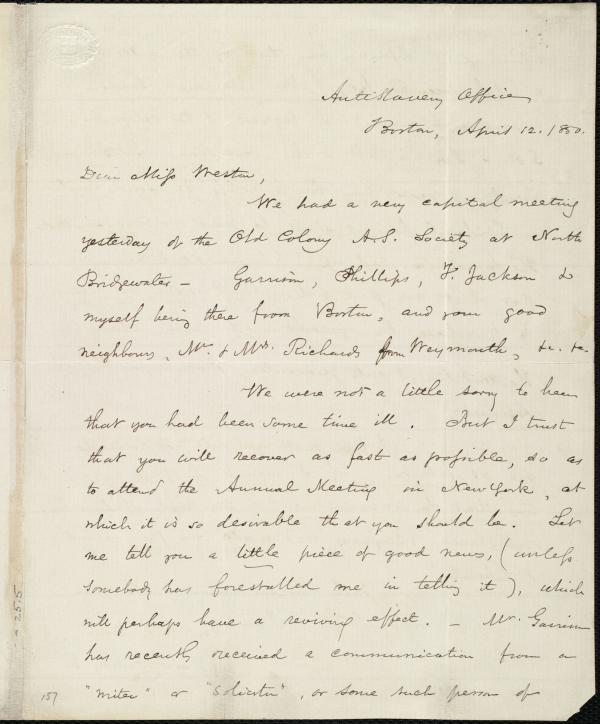 AntiSlavery Office,
Boston, April 12. 1850.
Dear Miss Weston,
We had a very capital meeting
yesterday of the Old Colony A.S. Society at North
Bridgewater – Garrison, Phillips, F. Jackson &
myself being there from Boston, and your good
neighbours, Mr. & Mrs. Richards from Weymouth, &c. &c.
We were not a little sorry to hear
that you had been some time ill. But I trust
that you will recover as fast as possible, so as
to attend the Annual Meeting in New York, at
which it is so desirable that you should be. Let
me tell you a little piece of good news, (unless
somebody has forestalled me in telling it), which
will perhaps have a reviving effect. – Mr. Garrison
has recently received a communication from a
"writer" or "Solicitor", or some such person of
25.5
157